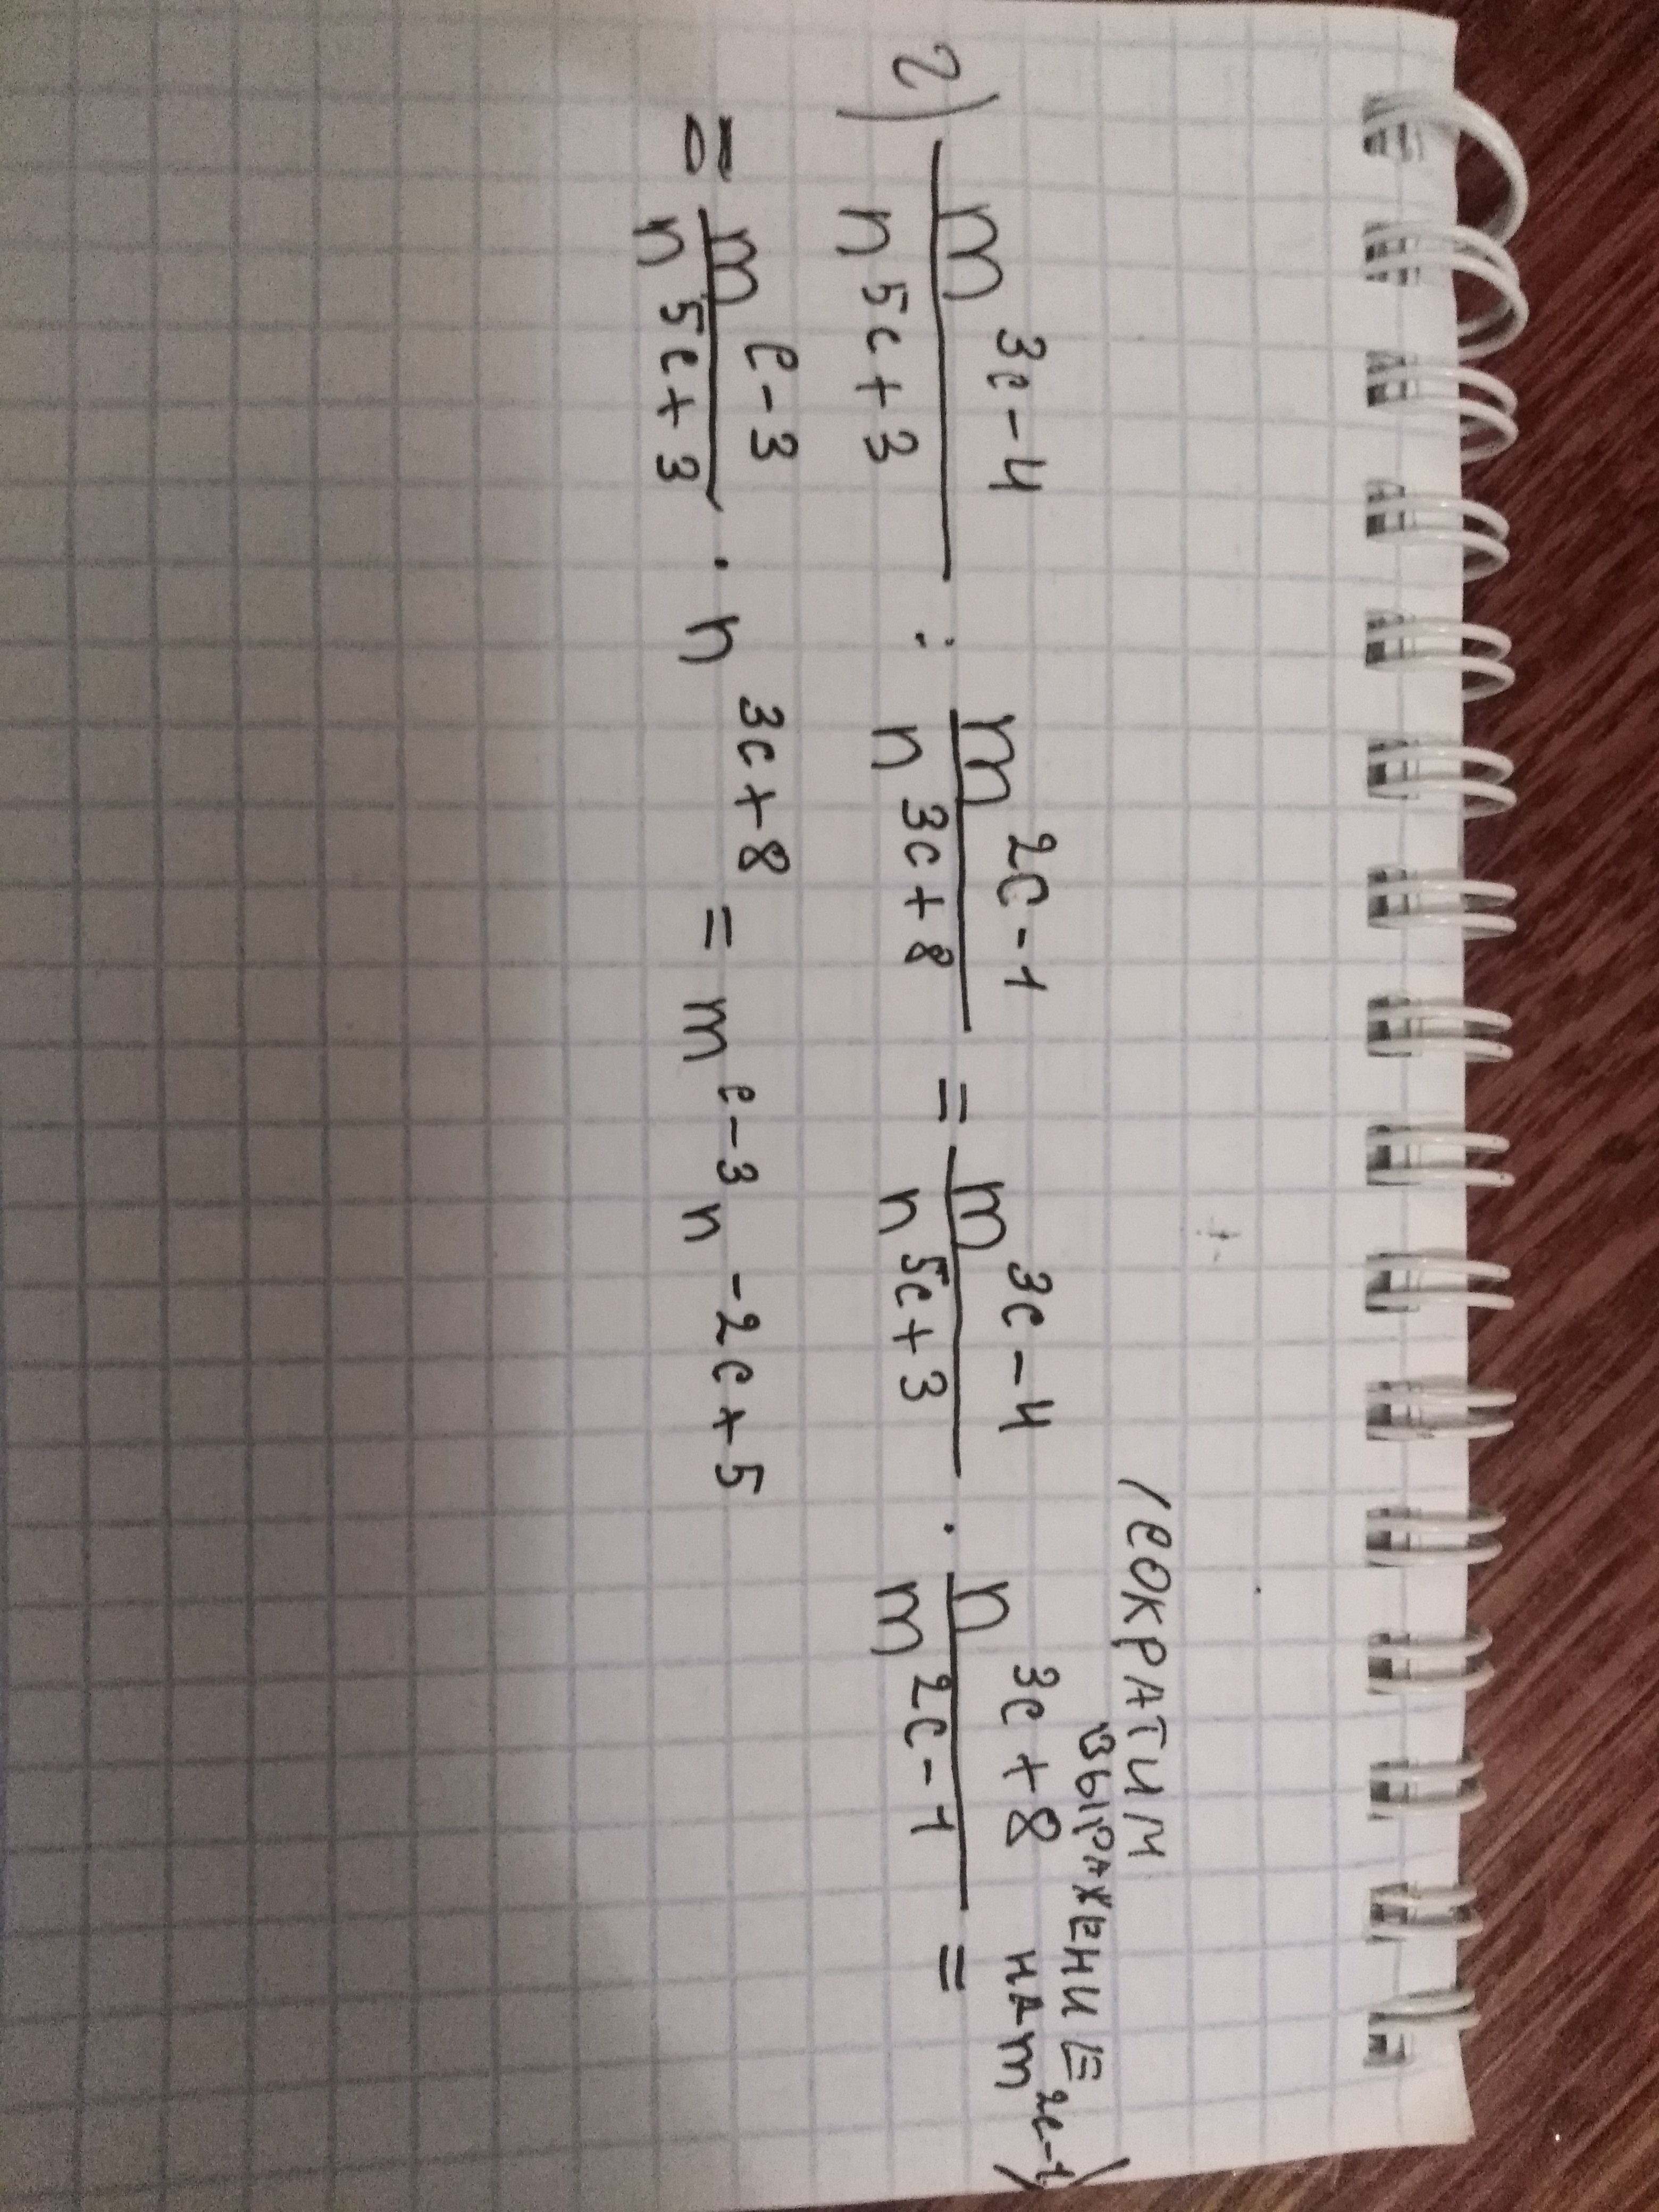 (СОКРАТИМ
ВЫРАЖЕНИЕ
НА m^{2c-1})
2) \frac{m^{3c-4}}{n^{5c+3}} : \frac{m^{2c-1}}{n^{3c+8}} = \frac{m^{3c-4}}{n^{5c+3}} · \frac{n^{3c+8}}{m^{2c-1}} =
= \frac{m^{c-3}}{n^{5c+3}} · n^{3c+8} = m^{c-3} n^{-2c+5}